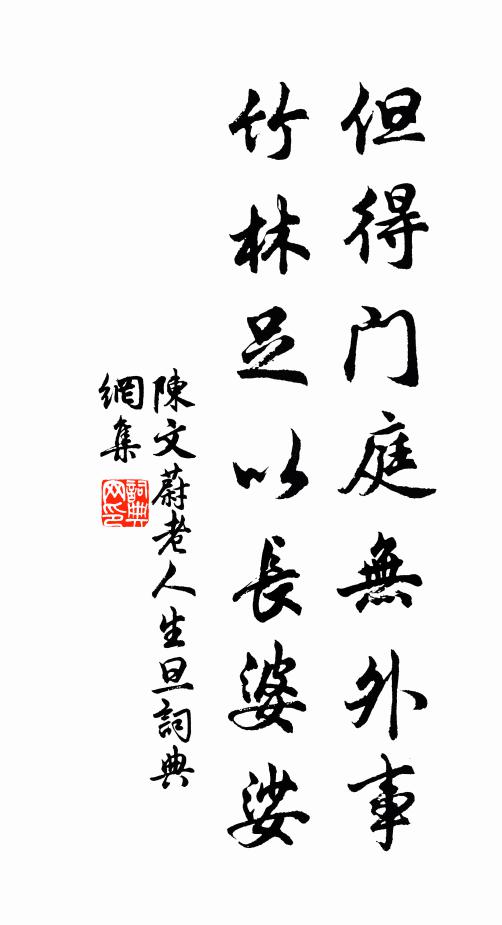 但得門庭無外事
竹林足以長婆娑
陳文蔚老人生旦詞典
網集
詞典網印